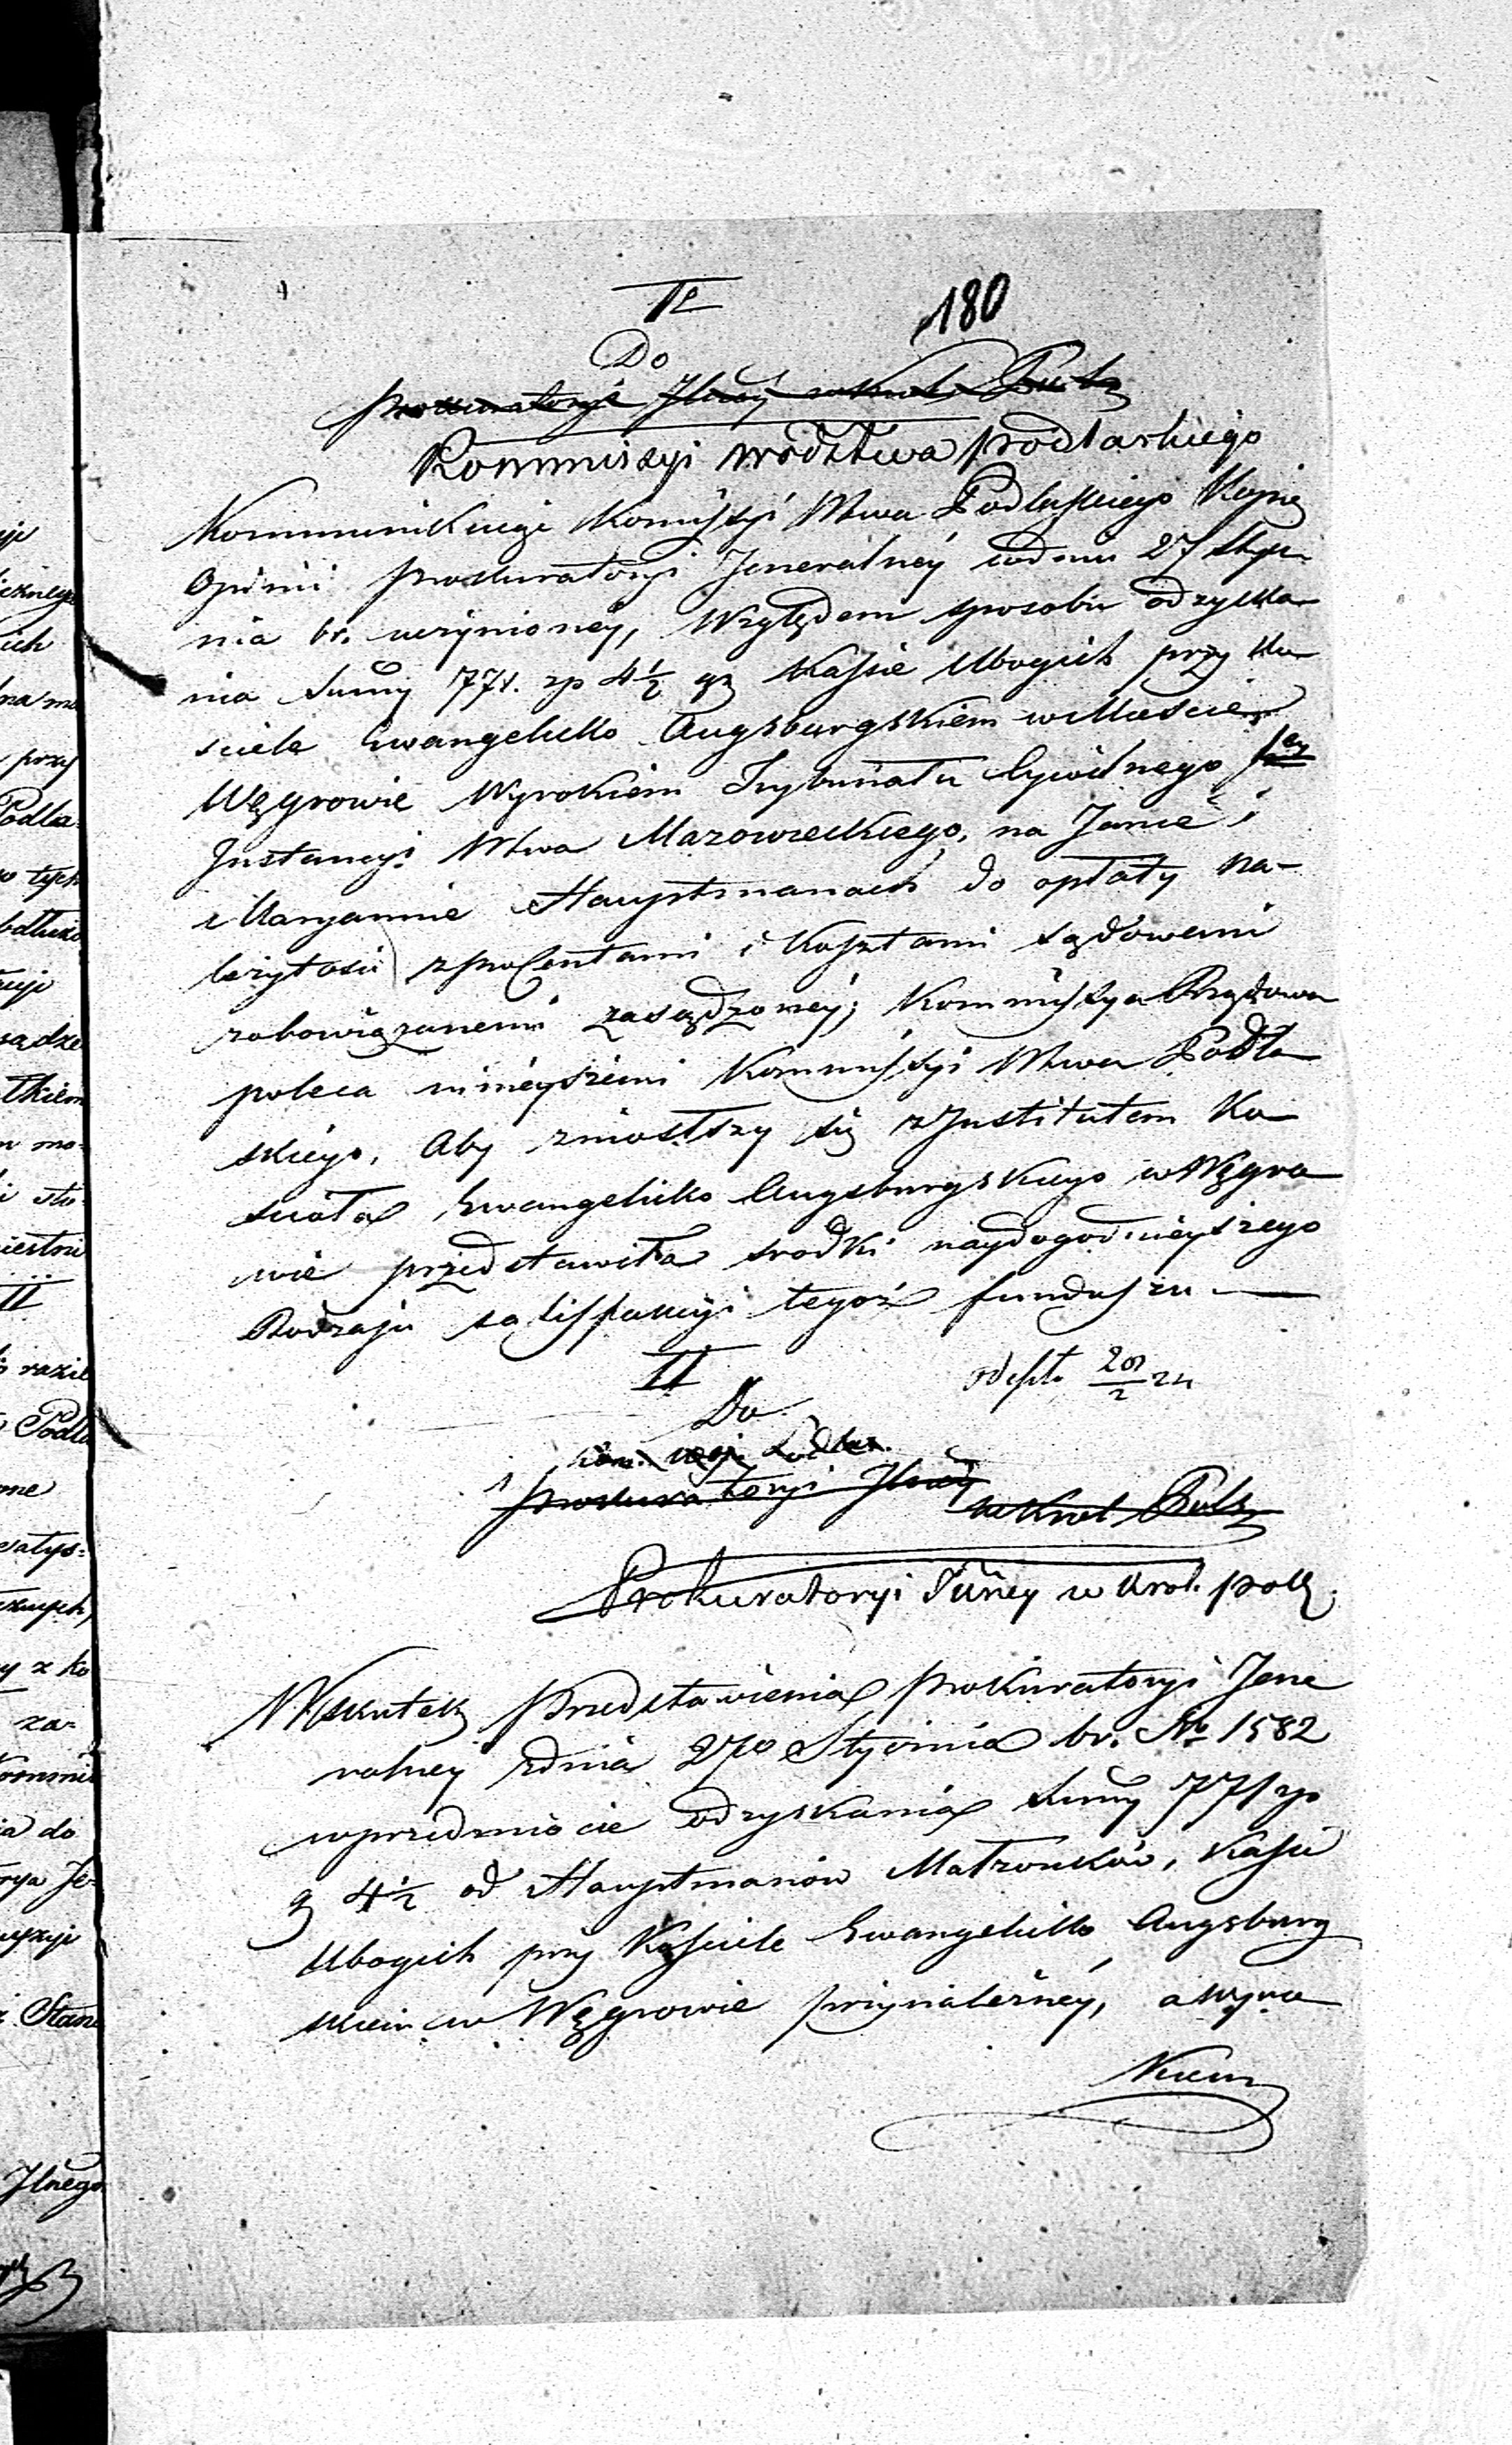 II
180
Do
Prokuratoryi Jlney w Król. Pols
Kommissyi Wództwa Podlaskiego
Kommunikując Komissyi Wtwa Podlaskiego Kopię
Opinii Prokuratoryi Jeneralney pod dniem 27 Stycz-
nia br. uczynioney, względem sposobu odzyska-
nia Summy 771. zp 4½ gr Kassie Ubogich przy Ko-
ściele Ewangelicko Augsburgskiem w Mieście
Węgrowie Wyrokiem Trybunału Cywilnego Iey
Instancyi Wtwa Mazowieckiego, na Janie i
Maryannie Hauptmanach do opłaty na-
leżytości z procentami i kosztami sądowemi
zobowiązanemi zasądzoney; Kommissya Rządowa
poleca ninieyszem Kommissyi Wtwa Podla
skiego, Aby zniosłszy się z Institutem Ko
ścioła Ewangelicko Augsburgskiego w Węgro
wie przedstawiła srodki naydogodnieyszego
Rodzaju satisfakcyi tegoż funduszu. —
II
odeszło 20/2 24
Do
Kom. Woje. Podlas.
Prokuratoryi Jlney
w Król. Pols
Prokuratoryi Jlney w Król. Pols.
W skutek Przedstawienia Prokuratoryi Jene
ralney z dnia 27go Stycznia br. No 1582
w przedmiocie odzyskania Summy 771 zp
g 4½ od Hauptmanów Małżonków, Kassie
Ubogich przy Kościele Ewangelicko Augsburg
skiem w Węgrowie przynależney, a wyro
kiem
ney
Podla
przy
Stan
Jlnego